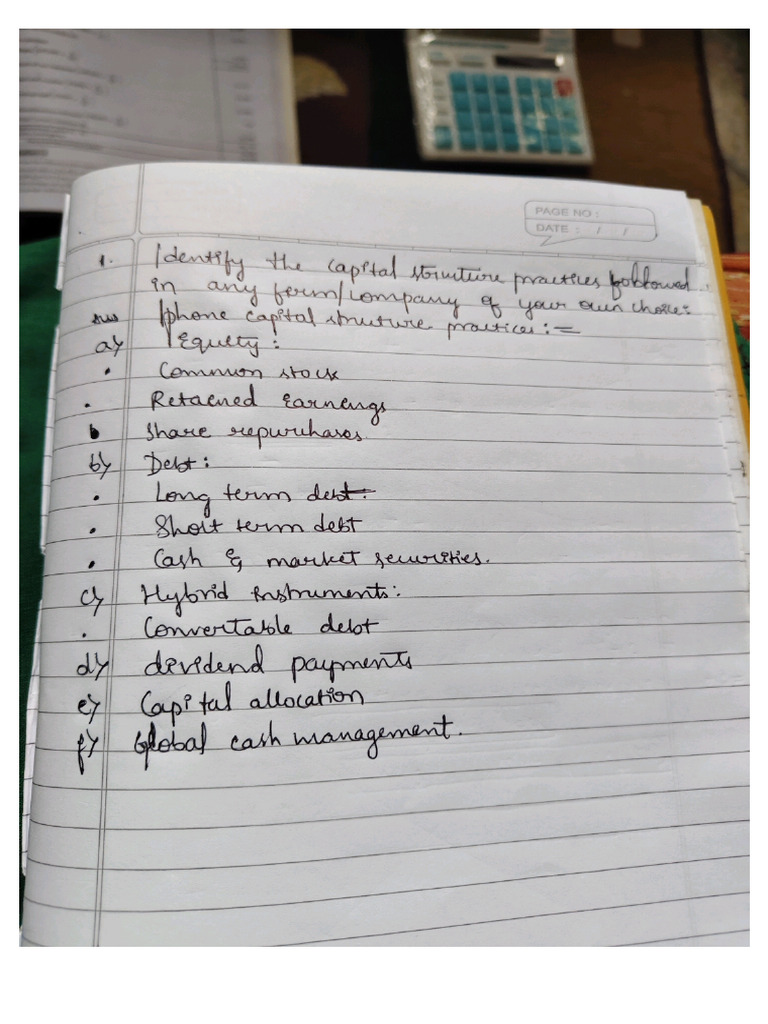 PAGE NO :
DATE : / /
1. Identify the capital structure practices followed
in any ferm/company of your own choice:
Ans Iphone capital struture practices:-
a) Equity:
• Common stock
• Retained Earnings
• Share repurchases.
b) Debt:
• Long term debt:
• Short term debt
• Cash & market securities.
c) Hybrid Instruments:
• Convertable debt
d) dividend payments
e) Capital allocation
f) Global cash management.